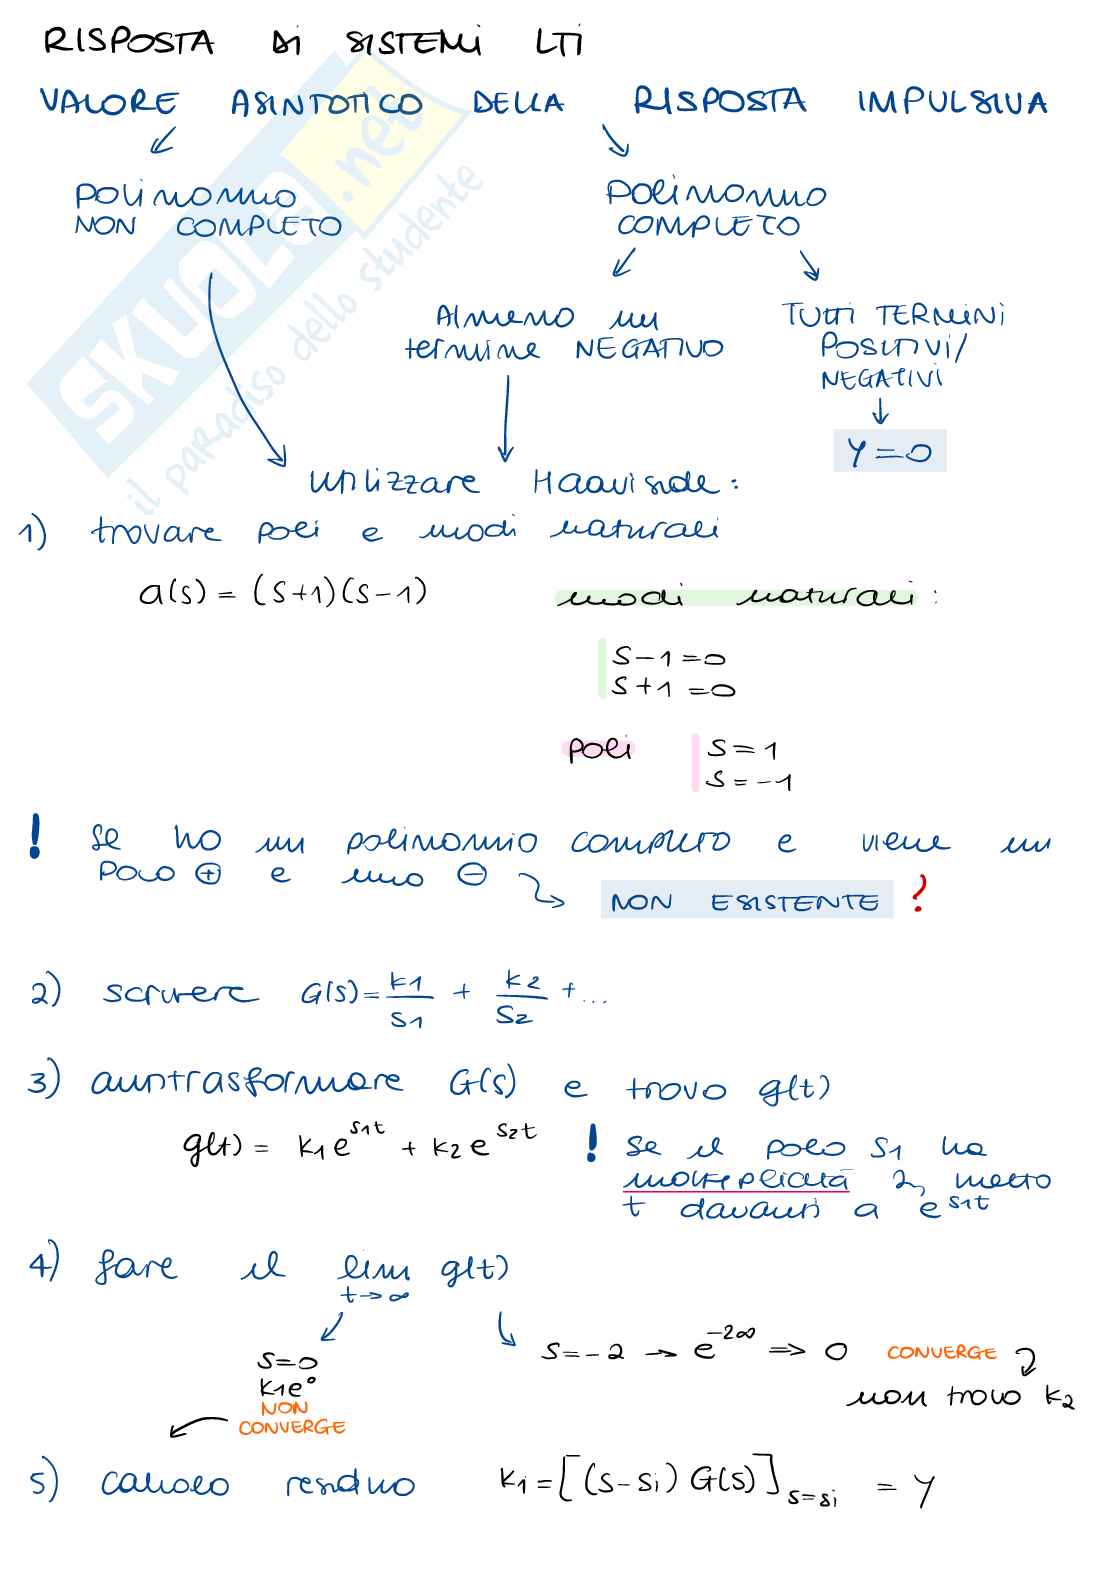 RISPOSTA DI SISTEMI LTI
VALORE ASINTOTICO DELLA RISPOSTA IMPULSIVA
POLINOMIO
NON COMPLETO
POLINOMIO
COMPLETO
Almeno un
termine NEGATIVO
TUTTI TERMINI
POSITIVI/
NEGATIVI
Y=0
utilizzare Haaviside:
1) trovare poli e modi naturali
a(s) = (s+1)(s-1)
modi naturali:
s-1=0
s+1=0
poli
s=1
s=-1
! se ho un polinomio completo e viene un
polo ⊕ e uno ⊖
NON ESISTENTE ?
2) scrivere G(s) = k1/s1 + k2/s2 + ...
3) antitrasformare G(s) e trovo g(t)
g(t) = k1 e^s1t + k2 e^s2t
! se il polo s1 ha
molteplicità 2, metto
t davanti a e^s1t
4) fare il lim g(t)
t→∞
s=0
k1e°
NON
CONVERGE
s=-2 → e^-2∞ ⇒ 0 CONVERGE
non trovo k2
5) calcolo residuo ki = [(s-si) G(s)] s=si = Y
SKUOLA.net
il paradiso dello studente